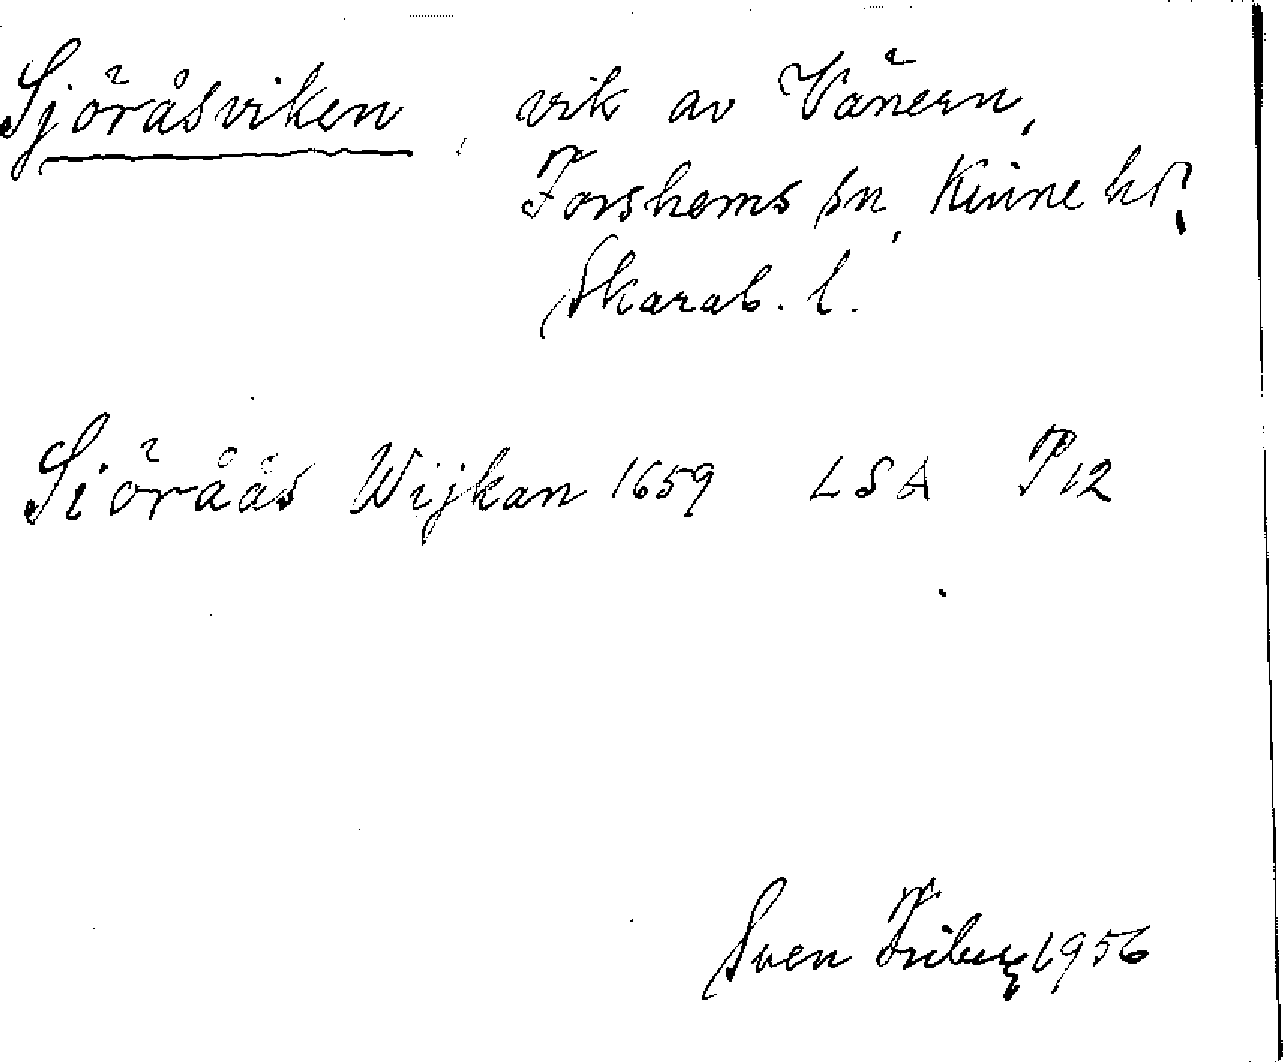 Sjöråsviken, vik av Vänern,
Forshems sn, Kinne hd,
Skarab. l.
Siöråås Wijkan 1659 LSA P12
Sven Friberg 1956